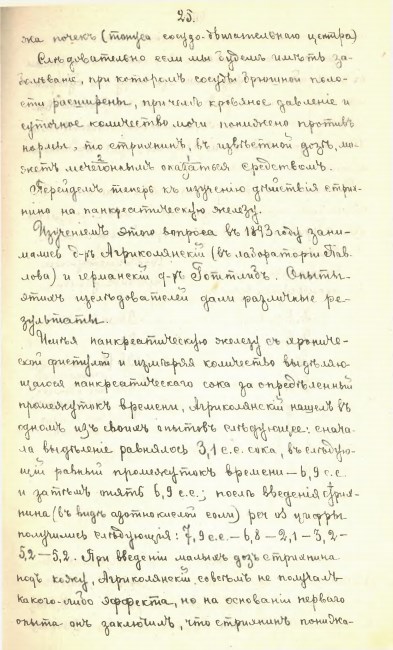 25.
жа почекъ (тонуса сосудо-двигательнаго центра)
Слѣдовательно если мы будемъ имѣть за-
болѣваніе, при которомъ сосуды брюшной поло-
сти расширены, причемъ кровяное давленіе и
суточное количество мочи понижено противъ
нормы, то стрихнинъ, въ извѣстной дозѣ, мо-
жетъ мочегоннымъ оказаться средствомъ.
Перейдемъ теперь къ изученію дѣйствія стрих-
нина на панкреатическую железу.
Изученіемъ этого вопроса въ 1893 году зани-
мались д-ръ Агриколянскій (въ лабораторіи Пав-
лова) и германскій д-ръ Готтлибъ. Опыты
этихъ изслѣдователей дали различные ре-
зультаты.
Имѣя панкреатическую железу съ хрониче-
ской фистулой и измѣряя количество выдѣляю-
щагося панкреатическаго сока за опредѣленный
промежутокъ времени, Агриколянскій нашелъ въ
одномъ изъ своихъ опытовъ слѣдующее: снача-
ла выдѣленіе равнялось 3,1 с.с. сока, въ слѣдую-
щій равный промежутокъ времени – 6,9 с.с.
и затѣмъ опять 6,9 с.с.; послѣ введенія стрих-
нина (въ видѣ азотнокислой соли) per os цифры
получились слѣдующія: 7,9 с.с. – 6,8 – 2,1 – 3,2 –
5,2 – 5,2. При введеніи малыхъ дозъ стрихнина
подъ кожу, Агриколянскій, совсѣмъ не получалъ
какого-либо эффекта, но на основаніи перваго
опыта онъ заключилъ, что стрихнинъ понижа-